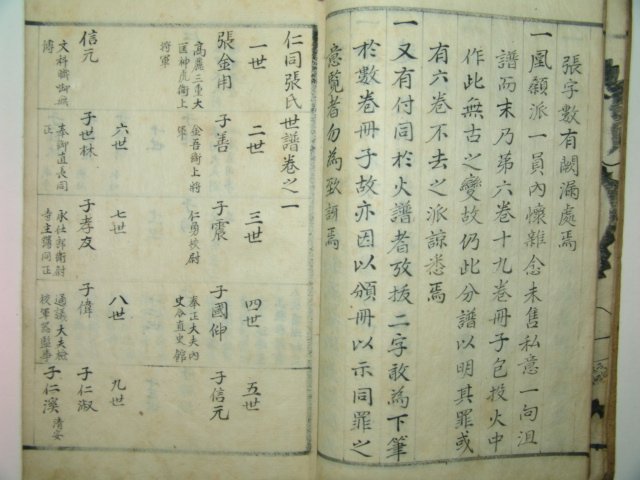 張字數有闕漏處焉
一凰顙派一員內懷雜念未售私意一向沮
譜而末乃第六卷十九卷冊子包投火中
作此無古之變故仍此分譜以明其罪或
有六卷不去之派諒悉焉
一又有付同於火譜者攷拔二字敢為下筆
於數卷冊子故亦因以頒冊以示同罪之
意覽者勿為致訝焉
仁同張氏世譜卷之一
一世 二世 三世 四世 五世
張金用 高麗三重大匡神虎衛上將軍
子善 金吾衛上將軍
子震 仁勇校尉
子國伸 奉正大夫內史令直史館
子信元
六世 七世 八世 九世
信元 文科職御無傳
子世林 奉御直長同正
子孝友 承仕郎衛尉寺主簿同正
子偉 通議大夫檢校軍器監事
子仁淑
子仁溪 清安